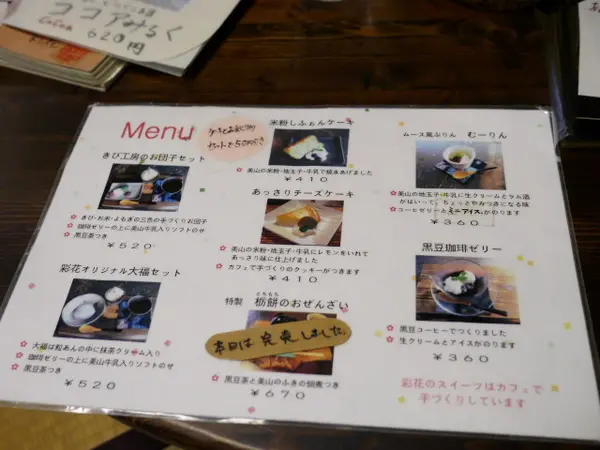 ココアみるく
Cocoa
620円
Menu
ケーキとお飲み物
セットで50円引き
きび工房のお団子セット
きび・お米・よもぎの三色の手づくりお団子
珈琲ゼリーの上に美山牛乳入りソフトのせ
黒豆茶つき
¥520
彩花オリジナル大福セット
大福は粒あんの中に抹茶クリーム入り
珈琲ゼリーの上に美山牛乳入りソフトのせ
黒豆茶つき
¥520
米粉しふぉんケーキ
美山の米粉・地玉子・牛乳で焼きあげました
¥410
あっさりチーズケーキ
美山の米粉・地玉子・牛乳にレモンをいれて
あっさり味に仕上げました
カフェで手づくりのクッキーがつきます
¥410
とちもち
特製 栃餅のおぜんざい
本日は完売しました。
黒豆茶と美山のふきの佃煮つき
¥670
ムース風ぷりん むーりん
美山の地玉子・牛乳に生クリームとラム酒
がはいって、ちょっとやみつきになる味
コーヒーゼリーとミニアイスがのります
¥360
黒豆珈琲ゼリー
黒豆コーヒーでつくりました
生クリームとアイスがのります
¥360
彩花のスイーツはカフェで
手づくりしています